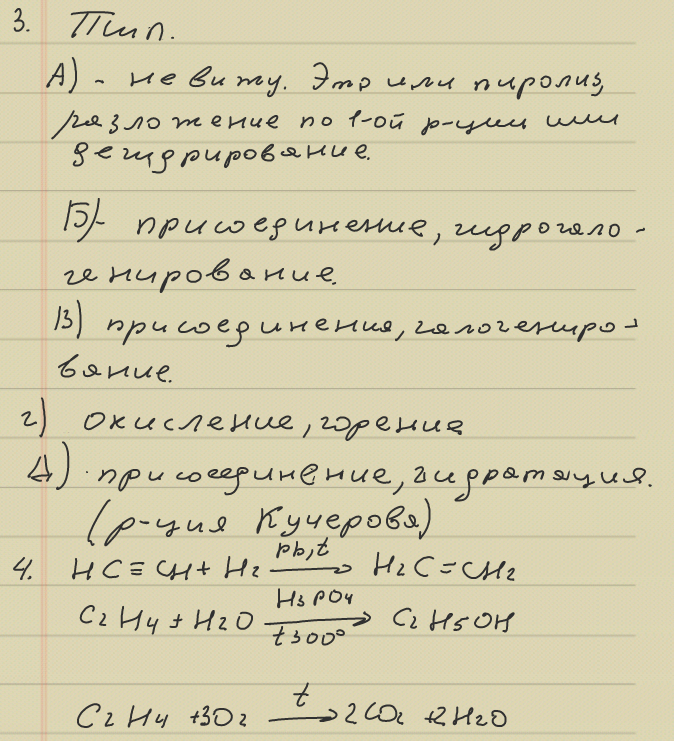 3. Тип.
А) - не вижу. Это или пиролиз,
разложение по 1-ой р-ции или
дегидрирование.
Б)- присоединение, гидрогало-
генирование.
В) присоединения, галогениро-
вание.
г) окисление, горение
Д) присоединение, гидратация.
(р-ция Кучерова)
4. HC≡CH + H2 →(pb,t) H2C=CH2
C2H4 + H2O →(H3PO4, t300°) C2H5OH
C2H4 +3O2 →(t) 2CO2 +2H2O